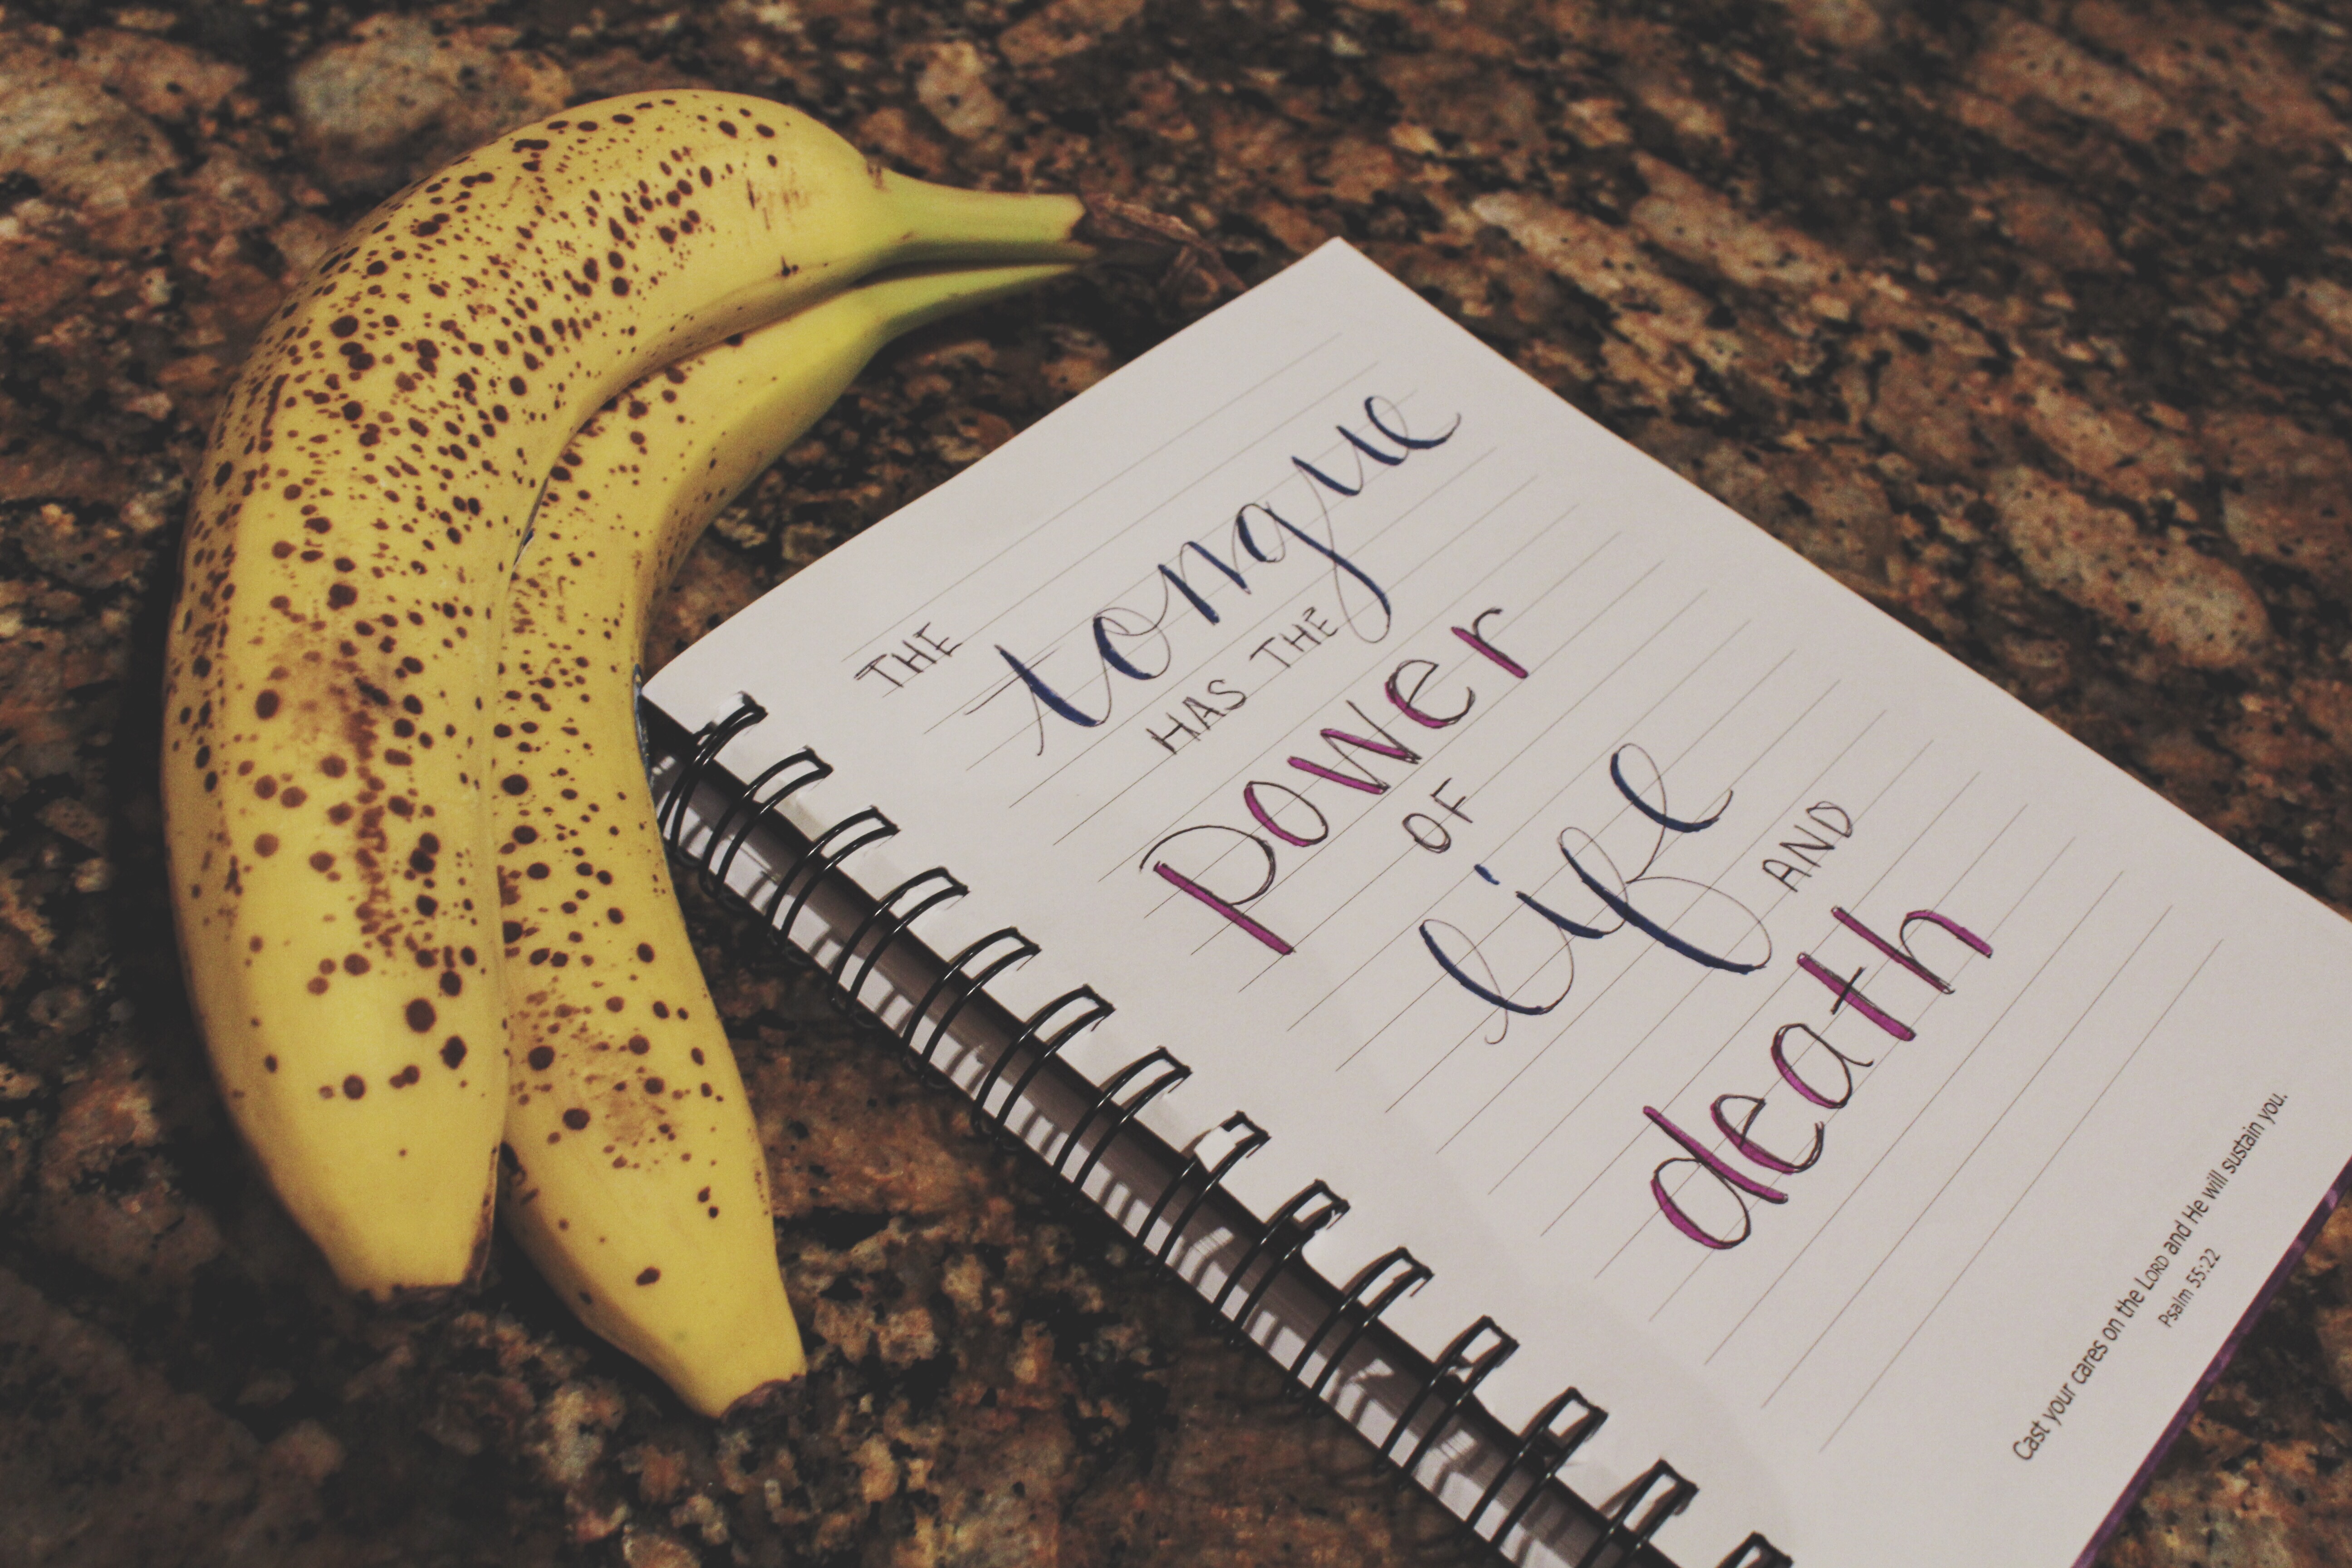 THE tongue
HAS THE
power
OF
life AND
death
Cast your cares on the LORD and He will sustain you.
Psalm 55:22